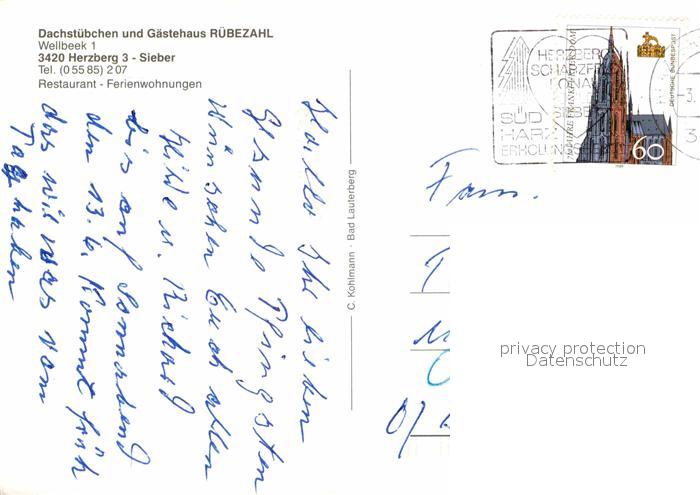 Dachstübchen und Gästehaus RÜBEZAHL
Wellbeek 1
3420 Herzberg 3 - Sieber
Tel. (0 55 85) 2 07
Restaurant - Ferienwohnungen
Hallo Ihr Lieben
Gesunde Pfingsten
Wünschen Euch allen
Hilde u. Richard
bis auf Sonnabend
den 13.6. Kommt früh
das wir was vom
Tag haben
C. Kohlmann · Bad Lauterberg
HERZBERG
SCHARZFELD
LONAU
SIEBER
SÜD
HARZ
ERHOLUNGS
FRANKFURTER DOM
DEUTSCHE BUNDESPOST
60
Fam.
privacy protection
Datenschutz